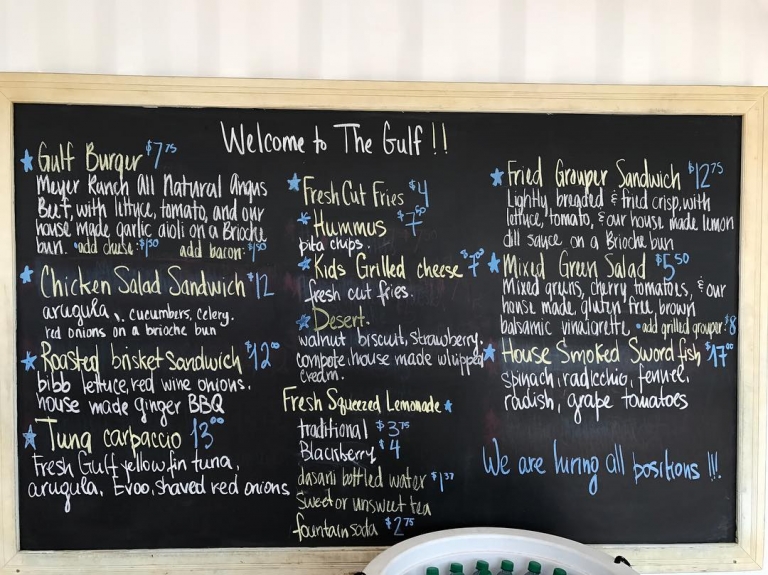 Welcome to The Gulf !!
Gulf Burger $7.75
Meyer Ranch All Natural Angus
Beef, with lettuce, tomato, and our
house made garlic aioli on a Brioche
bun. *add cheese: $1.50 add bacon: $1.50
Chicken Salad Sandwich $12
arugula, cucumbers, celery.
red onions on a brioche bun
Roasted brisket Sandwich $12.00
bibb lettuce, red wine onions.
house made ginger BBQ
Tuna carpaccio 13.00
Fresh Gulf yellow fin tuna,
arugula, Evoo, shaved red onions
Fresh Cut Fries $4
Hummus $7.50
pita chips.
Kids Grilled cheese $7.00
fresh cut fries.
Desert.
walnut biscuit, strawberry,
compote, house made whipped
cream.
Fresh Squeezed Lemonade
traditional $3.75
Blackberry $4
dasani bottled water
Sweet or unsweet tea
fountain soda $2.75
Fried Grouper Sandwich $12.75
Lightly breaded & fried crisp, with
lettuce, tomato, & our house made lemon
dill sauce on a Brioche bun
Mixed Green Salad $5.50
Mixed greens, cherry tomatoes, & our
house made, gluten free, brown
balsamic vinaigrette. *add grilled grouper: $8
House Smoked Swordfish $17.00
spinach, radicchio, fennel,
radish, grape tomatoes
We are hiring all positions !!!